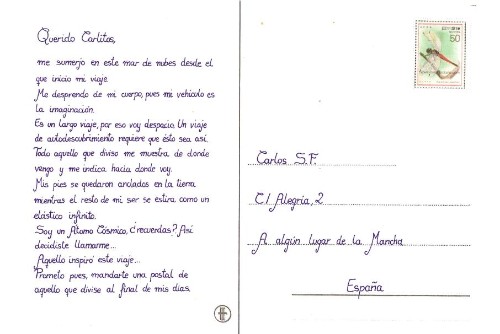 Querido Carlitos,
me sumerjo en este mar de nubes desde el
que inicio mi viaje.
Me desprendo de mi cuerpo, pues mi vehículo es
la imaginación.
Es un largo viaje, por eso voy despacio. Un viaje
de autodescubrimiento requiere que ésto sea así.
Todo aquello que diviso me muestra de donde
vengo y me indica hacia donde voy.
Mis pies se quedaron anclados en la tierra
mientras el resto de mi ser se estira como un
elástico infinito.
Soy un Átomo Cósmico, ¿recuerdas? Así
decidiste llamarme...
Aquello inspiró este viaje...
Prometo pues, mandarte una postal de
aquello que divise al final de mis días.
50
Carlos S.F.
C/ Alegría, 2
A algún lugar de la Mancha
España